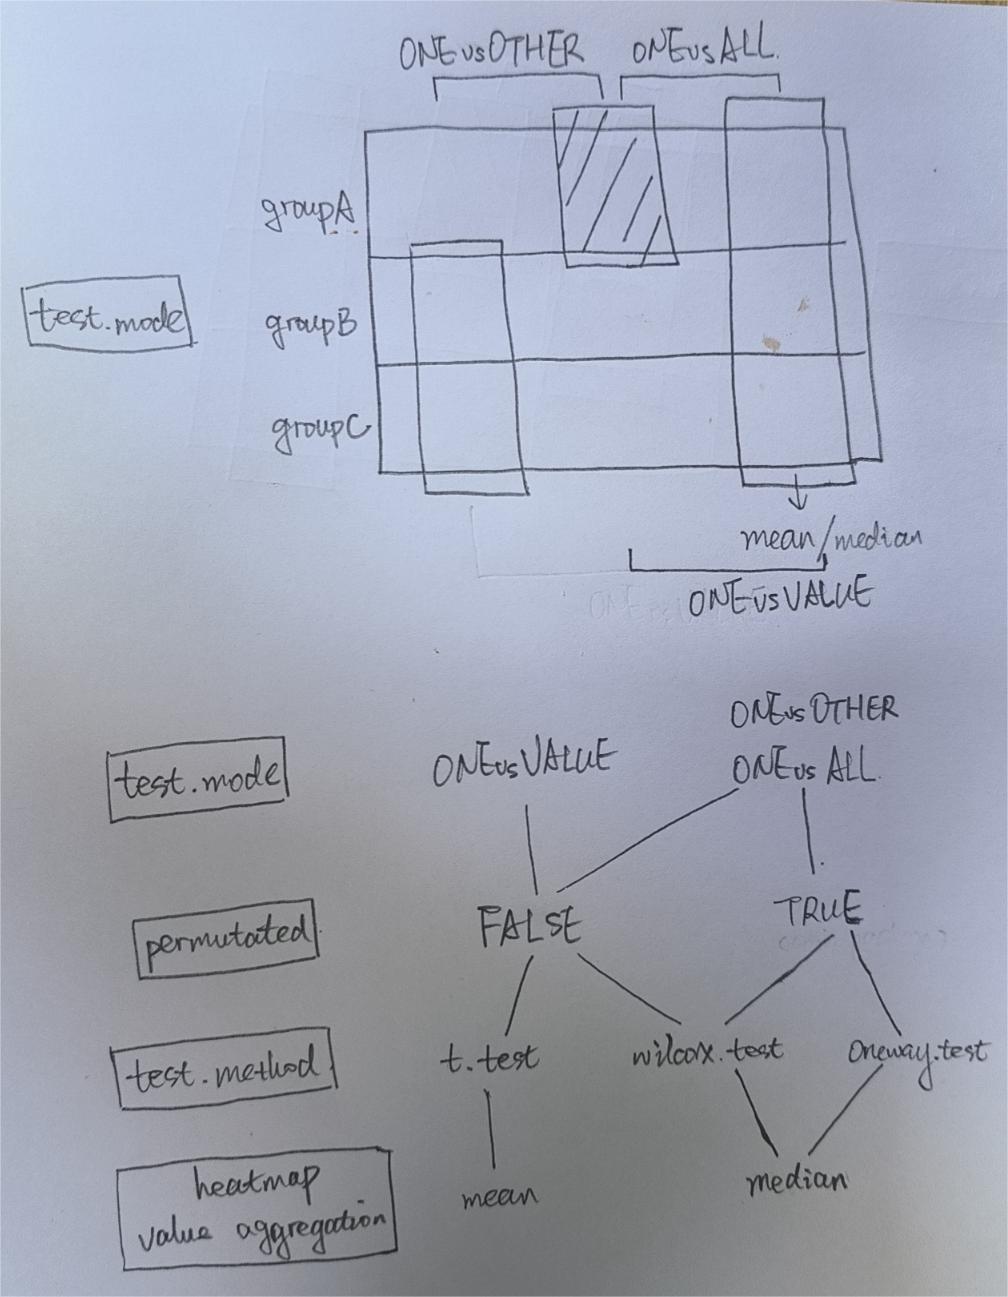 ONEvsOTHER ONEvsALL
groupA
test.mode
groupB
groupC
mean/median
ONEvsVALUE
ONEvsOTHER
test.mode ONEvsVALUE ONEvsALL
permutated FALSE TRUE
test.method t.test wilcox.test oneway.test
heatmap
value aggregation mean median